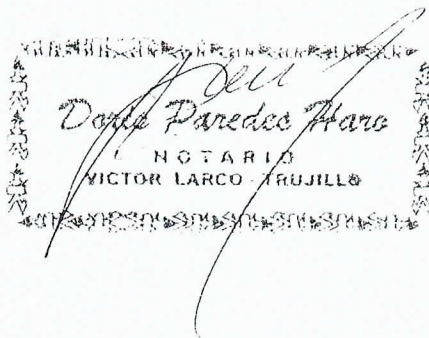 Doris Paredes Haro
NOTARIO
VICTOR LARCO - TRUJILLO